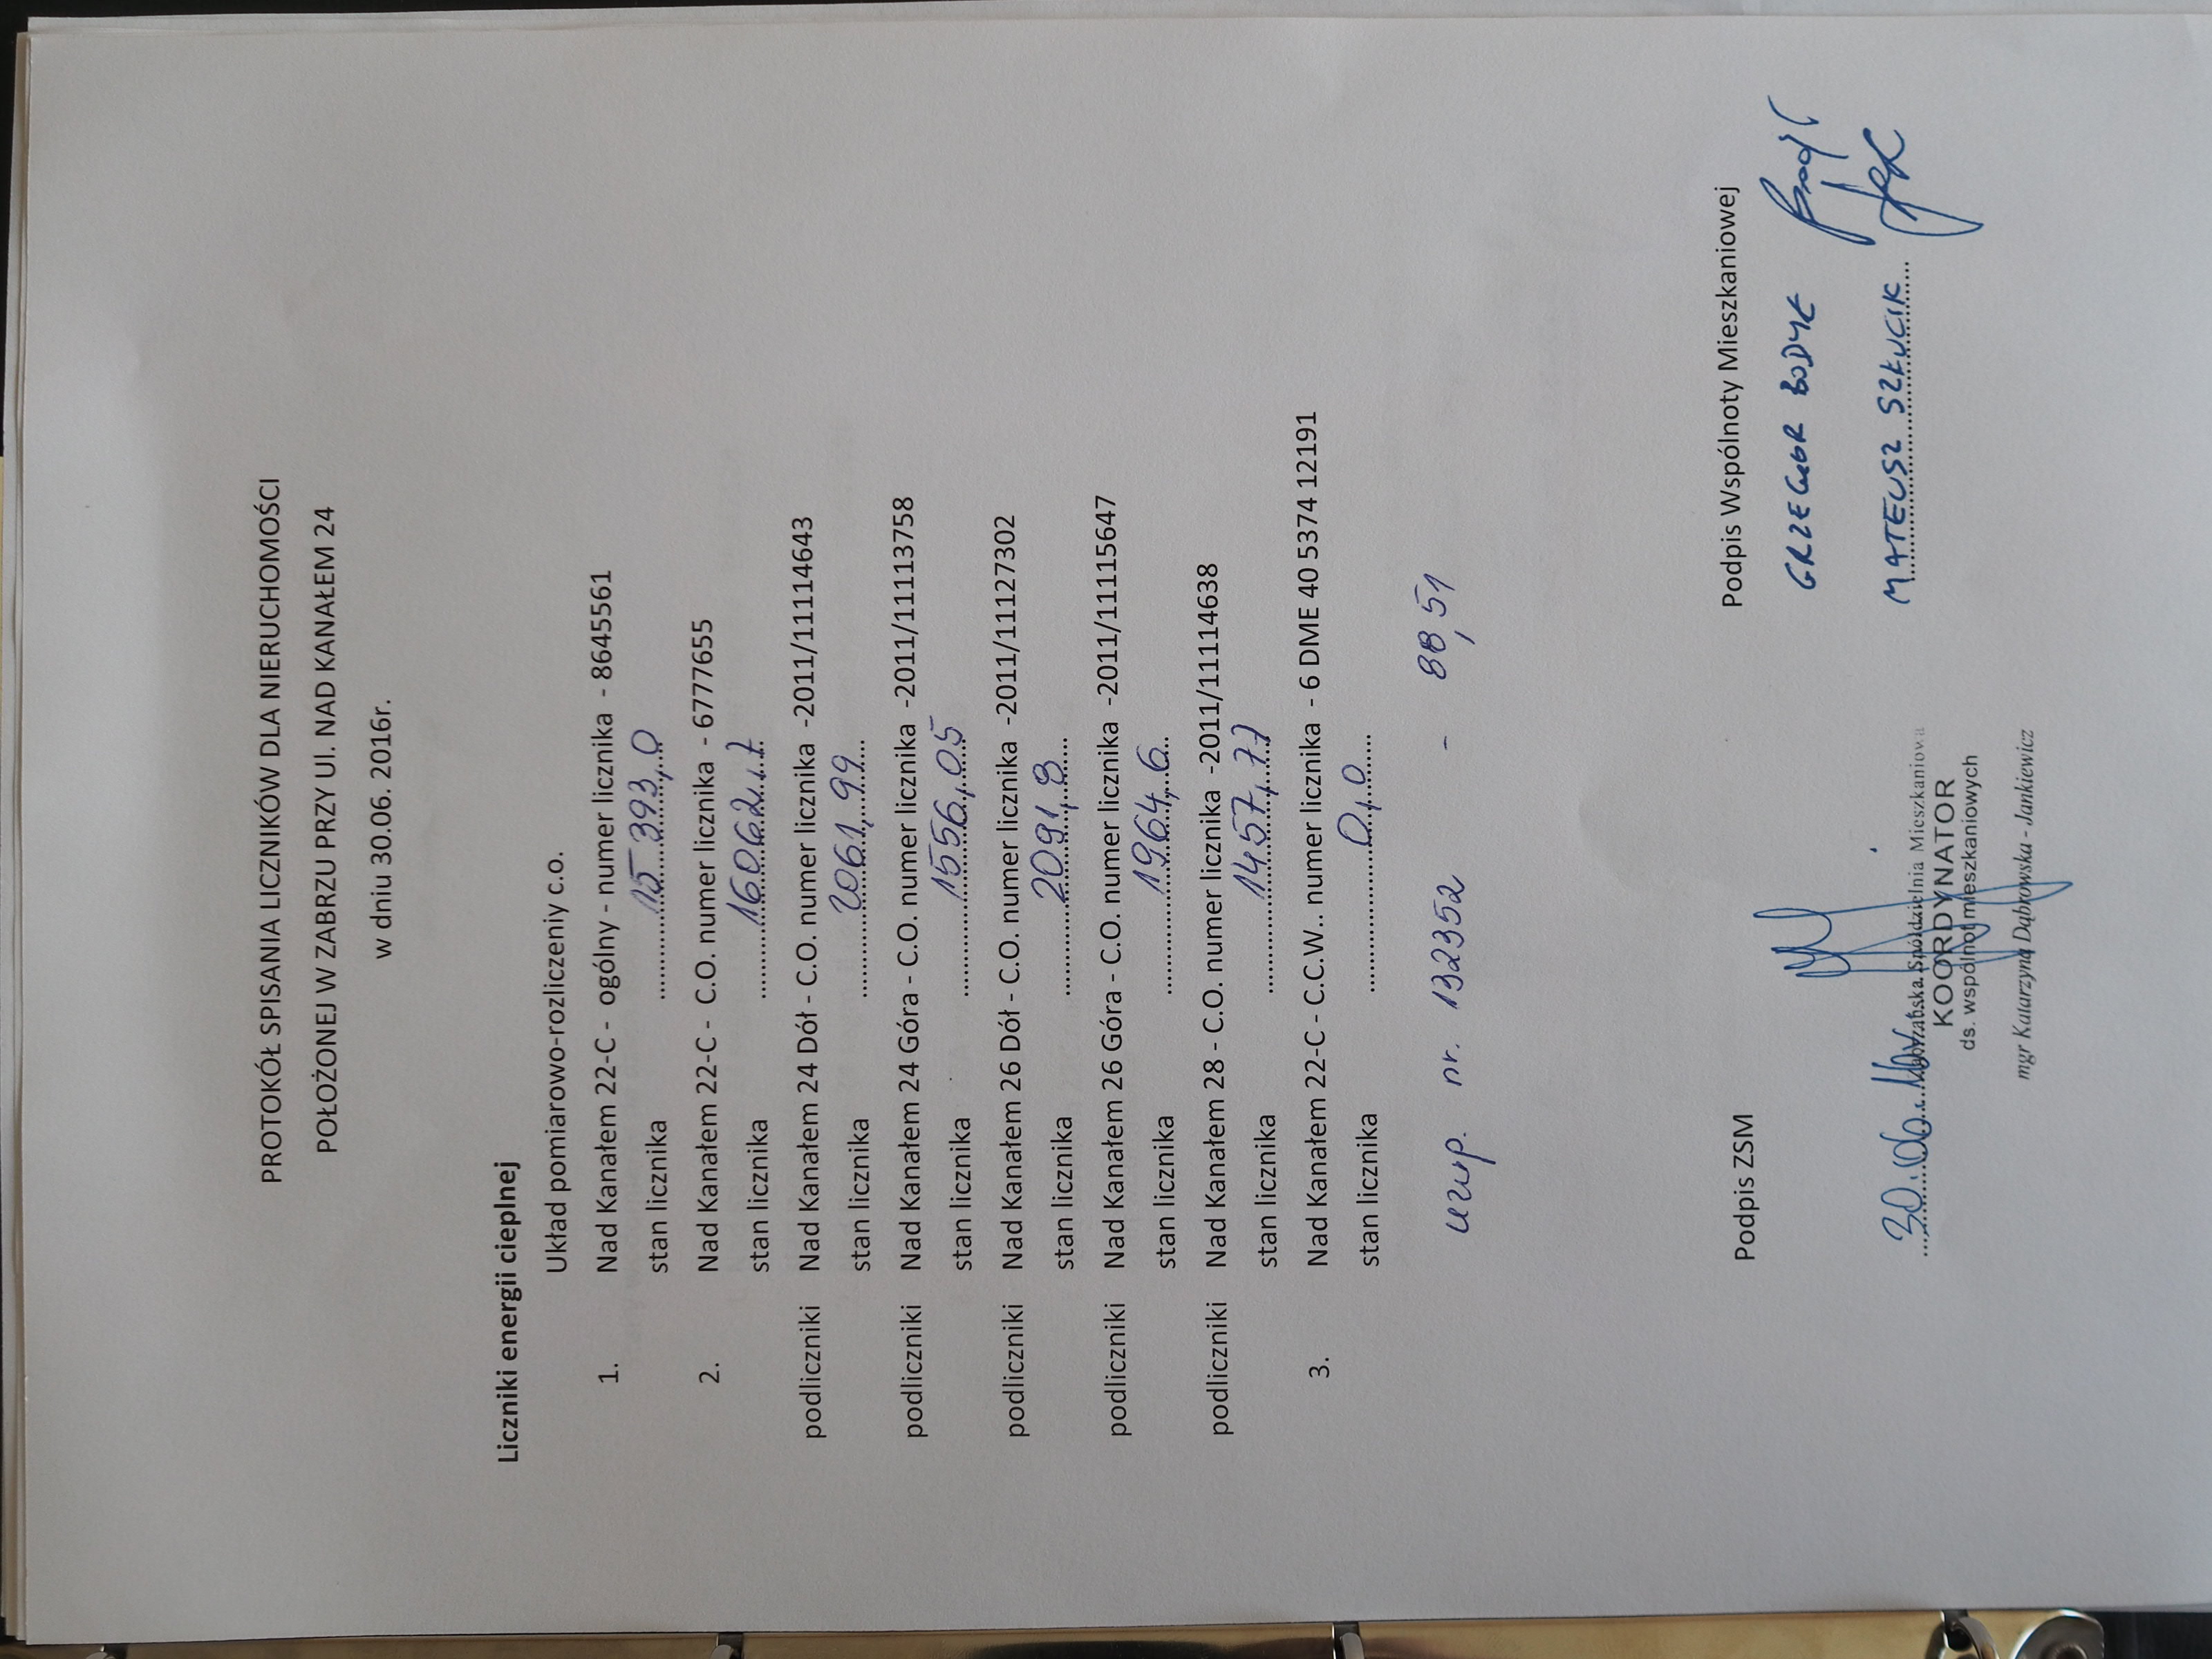 PROTOKÓŁ SPISANIA LICZNIKÓW DLA NIERUCHOMOŚCI
POŁOŻONEJ W ZABRZU PRZY Ul. NAD KANAŁEM 24
w dniu 30.06. 2016r.
Liczniki energii cieplnej
Układ pomiarowo-rozliczeniy c.o.
1. Nad Kanałem 22-C - ogólny - numer licznika - 8645561
stan licznika 15 393,0
2. Nad Kanałem 22-C - C.O. numer licznika - 6777655
stan licznika 16062,7
podliczniki Nad Kanałem 24 Dół - C.O. numer licznika -2011/11114643
stan licznika 2061,99
podliczniki Nad Kanałem 24 Góra - C.O. numer licznika -2011/11113758
stan licznika 1556,05
podliczniki Nad Kanałem 26 Dół - C.O. numer licznika -2011/11127302
stan licznika 2091,8
podliczniki Nad Kanałem 26 Góra - C.O. numer licznika -2011/11115647
stan licznika 1964,6
podliczniki Nad Kanałem 28 - C.O. numer licznika -2011/11114638
stan licznika 1457,77
3. Nad Kanałem 22-C - C.C.W.. numer licznika - 6 DME 40 5374 12191
stan licznika 0,0
uzup. nr. 132352 - 88,51
Podpis ZSM Podpis Wspólnoty Mieszkaniowej
GRZEGORZ BODYK
30.06. MATEUSZ SZŁUCIK
Spółdzielnia Mieszkaniowa
KOORDYNATOR
ds. wspólnot mieszkaniowych
mgr Katarzyna Dąbrowska - Jankiewicz